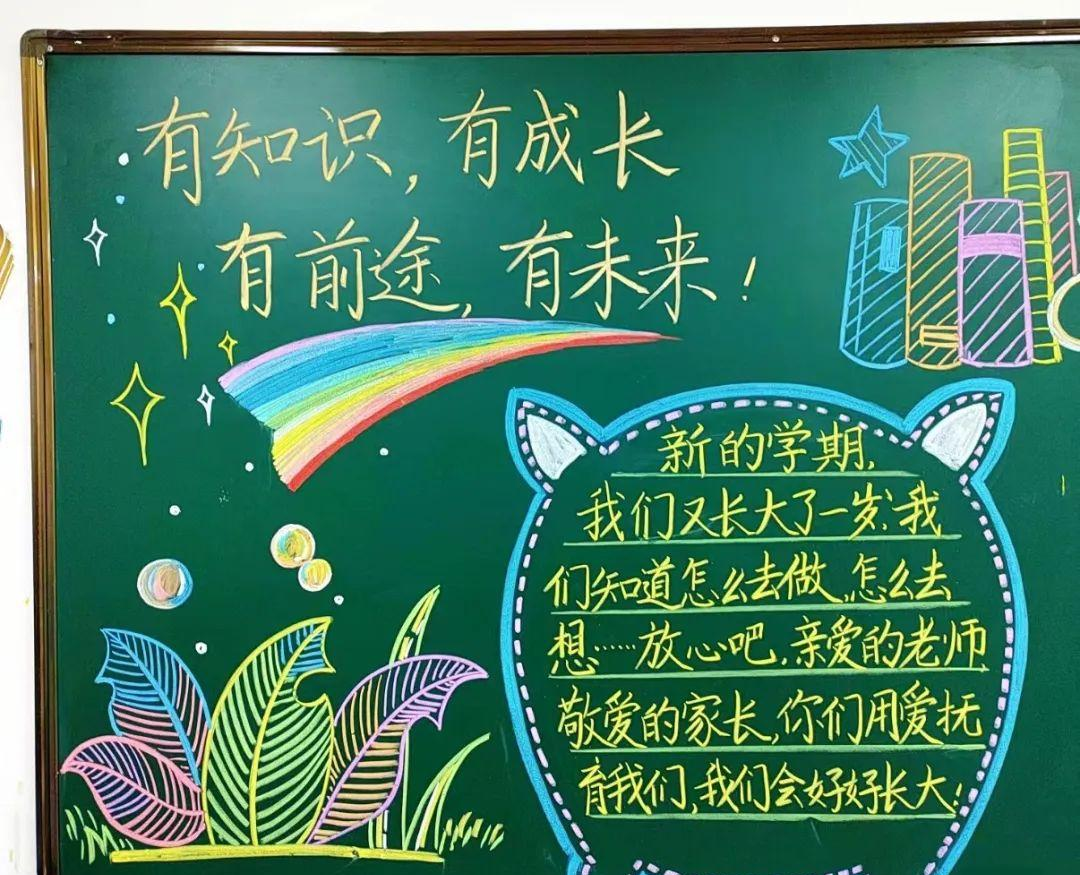 有知识，有成长
有前途，有未来！
新的学期，
我们又长大了一岁：我
们知道怎么去做，怎么去
想……放心吧，亲爱的老师
敬爱的家长，你们用爱抚
育我们，我们会好好长大！